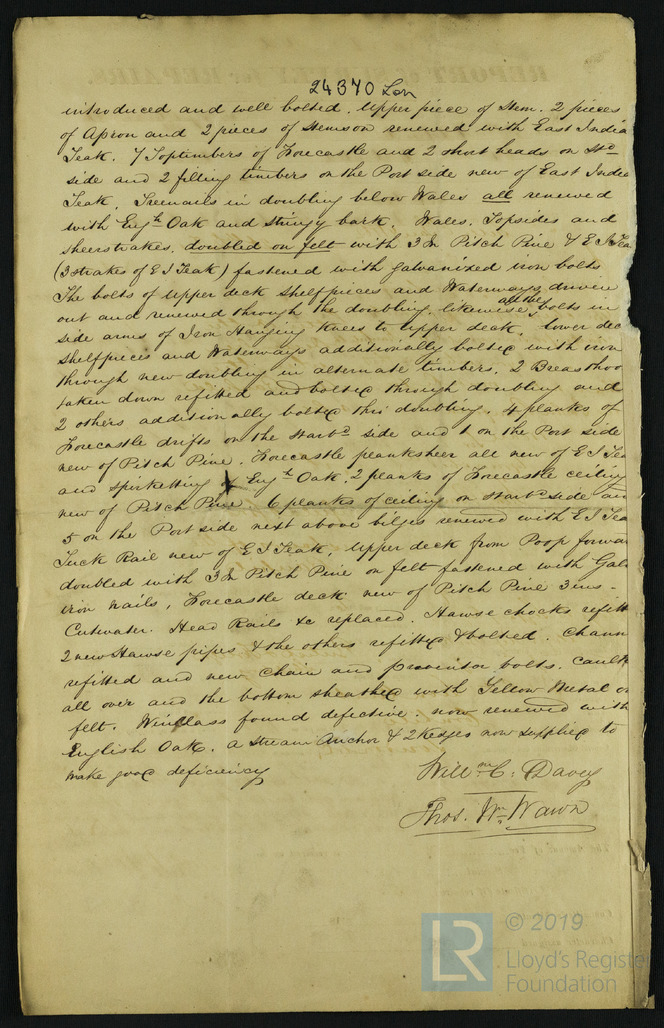 24370 Lon
introduced and well bolted. Upper piece of Stem. 2 pieces
of Apron and 2 pieces of Stemson renewed with East India
Teak. 7 Toptimbers of Forecastle and 2 short heads on Stbd
side and 2 filling timbers on the Port side new of East India
Teak. Treenails in doubling below Wales all renewed
with Engh Oak and Stringy bark. Wales. Topsides and
sheerstrakes. doubled on felt with 3 In Pitch Pine & E I Tea
(3 strakes of E I Teak) fastened with galvanized iron bolts
The bolts of Upper deck shelfpieces and Waterways driven
out and renewed through the doubling. likewise all the bolts in
side arms of Iron Hanging Knees to Upper deck. lower dec
shelfpieces and Waterways additionally bolted with iron
through new doubling in alternate timbers. 2 Breasthoo
taken down refitted and bolted through doubling and
2 others additionally bolted thro doubling. 4 planks of
Forecastle drifts on the Starbd side and 1 on the Port side
new of Pitch Pine. Forecastle planksheer all new of E I Tea
and spirketting of Engh Oak. 2 planks of Forecastle ceiling
new of Pitch Pine 6 planks of ceiling on starbd side an
5 on the Port side next above bilges renewed with E I Tea
Tuck Rail new of E I Teak. Upper deck from Poop forwar
doubled with 3 In Pitch Pine on felt fastened with Galv
iron nails, Forecastle deck new of Pitch Pine 3 ins -
Cutwater. Head Rails &c replaced. Hawse chocks refitt
2 new Hawse pipes & the others refitted & bolted. Chann
refitted and new chain and preventer bolts. Caulk
all over and the bottom sheathed with Yellow Metal on
felt. Windlass found defective. now renewed with
English Oak. a Stream Anchor & 2 Kedges now supplied to
make good deficiency
Willm C. Davey
Thos. Wm Wawn
© 2019
LR
Lloyd's Register
Foundation